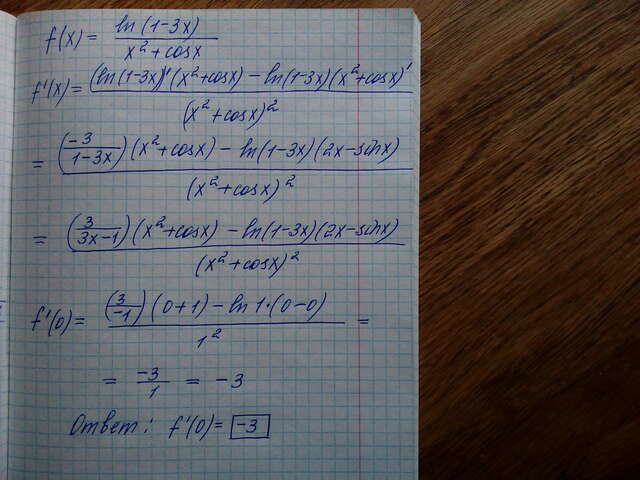 f(x) = ln(1-3x) / x² + cosx
f'(x) = (ln(1-3x))'(x²+cosx) - ln(1-3x)(x²+cosx)' / (x²+cosx)²
= (-3 / 1-3x)(x²+cosx) - ln(1-3x)(2x-sinx) / (x²+cosx)²
= (3 / 3x-1)(x²+cosx) - ln(1-3x)(2x-sinx) / (x²+cosx)²
f'(0) = (3 / -1)(0+1) - ln1·(0-0) / 1² =
= -3 / 1 = -3
Ответ: f'(0) = -3